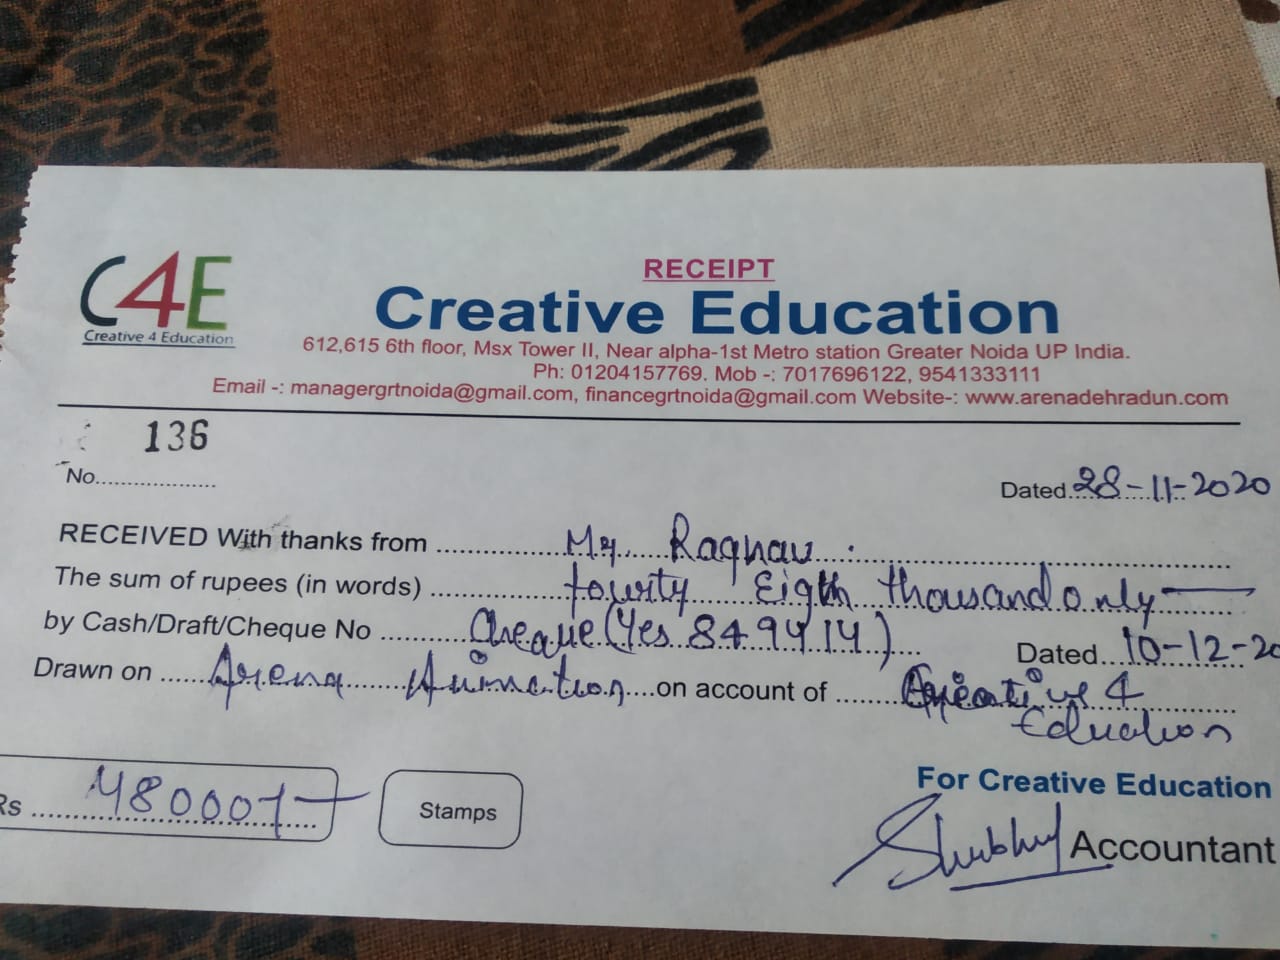 C4E
Creative 4 Education
RECEIPT
Creative Education
612,615 6th floor, Msx Tower II, Near alpha-1st Metro station Greater Noida UP India.
Ph: 01204157769. Mob -: 7017696122, 9541333111
Email -: managergrtnoida@gmail.com, financegrtnoida@gmail.com Website-: www.arenadehradun.com
136
No.................. Dated 28-11-2020
RECEIVED With thanks from Mr. Raghav.
The sum of rupees (in words) fourty Eigth thousand only
by Cash/Draft/Cheque No Cheque (Yes 849414) Dated 10-12-20
Drawn on Arena Animation on account of Creative 4
Education
For Creative Education
Rs 48000/- Stamps
Accountant